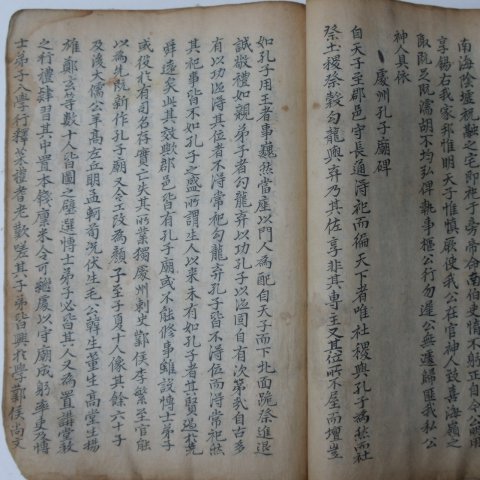 南海陰墟祝融之宅即祀于旁帝命南伯吏惰不躬正自今公明用
享錫右我家邦惟明天子惟慎厥使我公在官神人致喜海嶺之
陬既足既濡胡不均弘俾執事樞公行勿遲公無遽歸匪我私公
神人具依
處州孔子廟碑
自天子至郡邑守長通得祀而徧天下者唯社稷與孔子為然而社
祭土稷祭穀勾龍與弃乃其佐享非其專主又其位所不屋而壇豈
如孔子用王者事巍然當座以門人為配自天子而下北面跪祭進退
誠敬禮如親弟子者勾龍弃以功孔子以德固自有次第哉自古多
有以功德得其位者不得常祀勾龍弃孔子皆不得位而得常祀然
其祀事皆不如孔子之盛所謂生人以來未有如孔子者其賢過於堯
舜遠矣此其效歟郡邑皆有孔子廟或不能修事雖設博士弟子
或役於有司名存實亡失其所業獨處州刺史鄴侯李繁至官能
以為先既新作孔子廟又令工改為顏子至子夏十人像其餘六十子
及後大儒公羊高左丘明孟軻荀況伏生毛公韓生董生高堂生揚
雄鄭玄等數十人皆圖之壁選博士弟子必皆其人又為置講堂教
之行禮肄習其中置本錢廩米令可繼處以守廟成躬率吏及博
士弟子入學行釋菜禮耆老歎嗟其子弟皆興於學鄴侯尚文